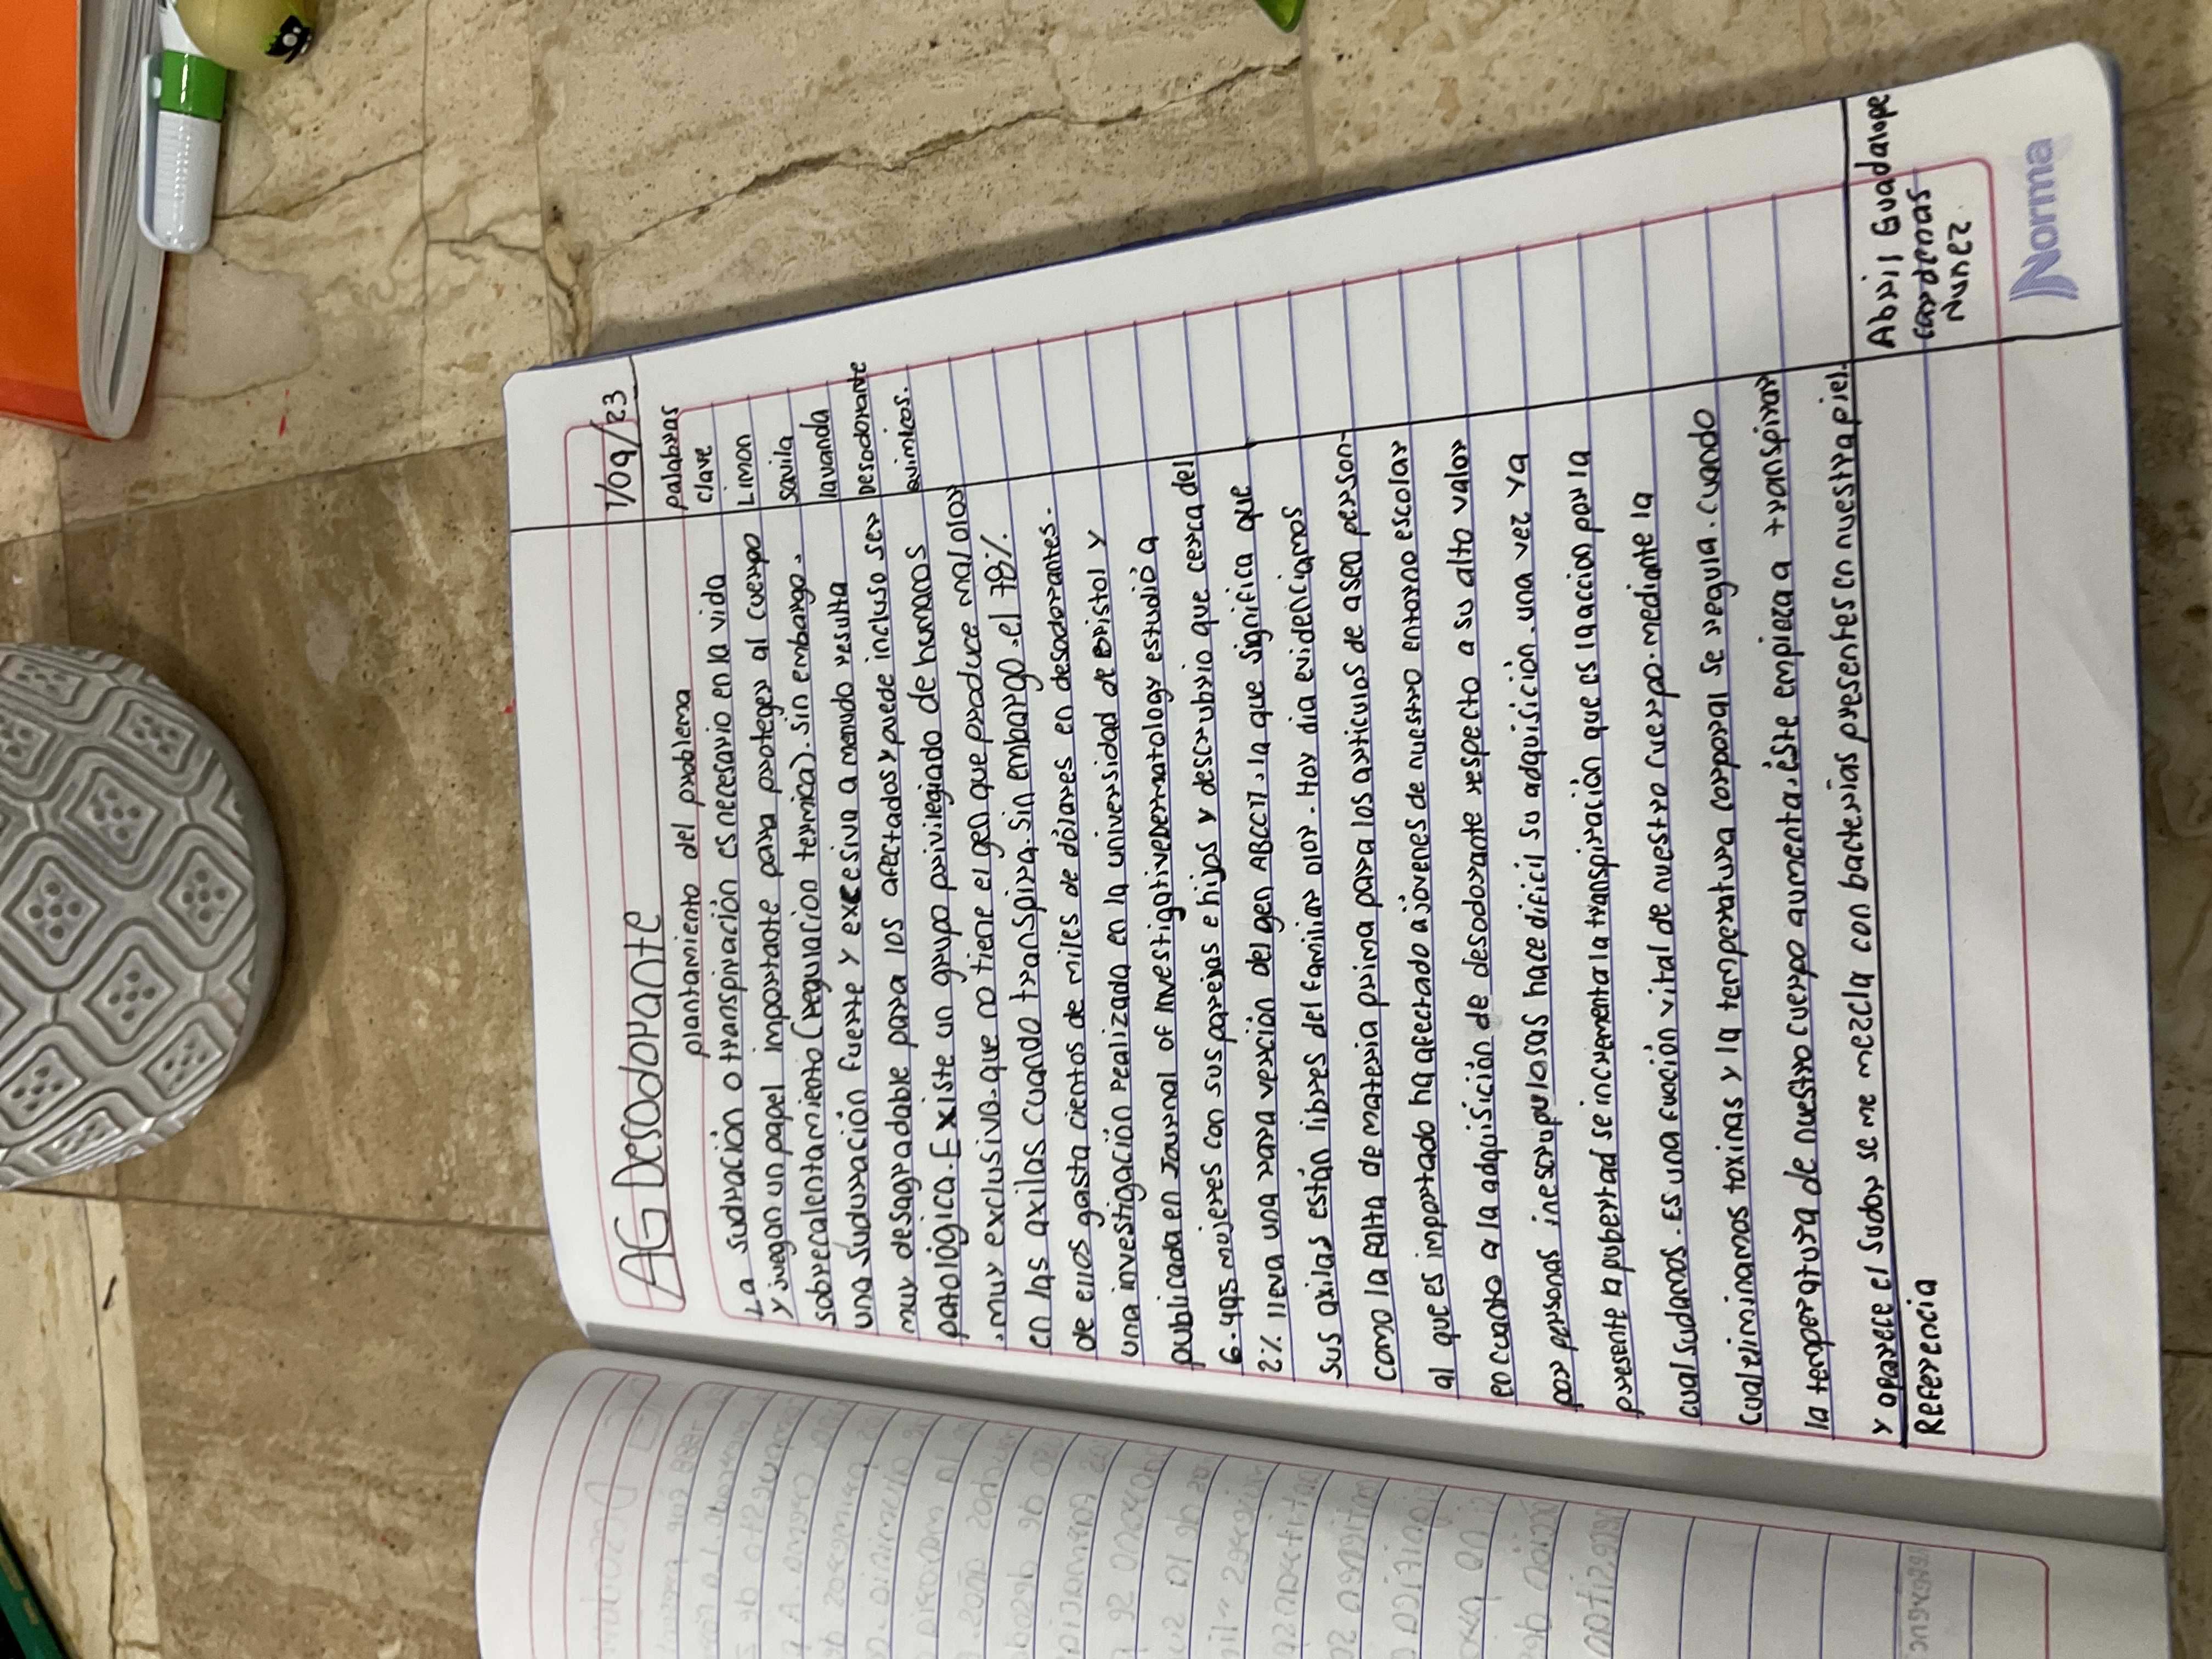 AG Desodorante
1/09/23
plantamiento del problema
La sudración o transpiración es necesario en la vida
y juegan un papel importante para proteger al cuerpo
sobrecalentamiento (regulación termica). Sin embargo.
una suduración fuerte y excesiva a menudo resulta
muy desagradable para los afectados y puede incluso ser
patológica. Existe un grupo privilegiado de humanos
.muy exclusivo. que no tiene el gen que produce mal olor
en las axilas cuando transpira. Sin embargo. el 78%
de ellos gasta cientos de miles de dólares en desodorantes.
una investigación realizada en la universidad de Bristol y
publicada en Journal of Investigative Dermatology estudió a
6.495 mujeres con sus parejas e hijos y descubrio que cerca del
2% lleva una rara verción del gen ABCC11, la que significa que
sus axilas están libres del familiar olor. Hoy día evidenciamos
como la falta de materia prima para los articulos de aseo person-
al que es importado ha afectado a jóvenes de nuestro entorno escolar
en cuanto a la adquisición de desodorante respecto a su alto valor
por personas inescrupulosas hace dificil su adquisición. una vez ya
presente la pubertad se incrementa la transpiración que es la acción por la
cual sudamos. Es una fución vital de nuestro cuerpo. mediante la
cual eliminamos toxinas y la temperatura corporal se regula. cuando
la temperatura de nuestro cuerpo aumenta, éste empieza a transpirar
y aparece el sudor se me mezcla con bacterias presentes en nuestra piel.
palabras
clave
Limon
savila
lavanda
Desodorante
quimicos.
Referencia
Abril Guadalope
cardenas
Nuñez.
Norma